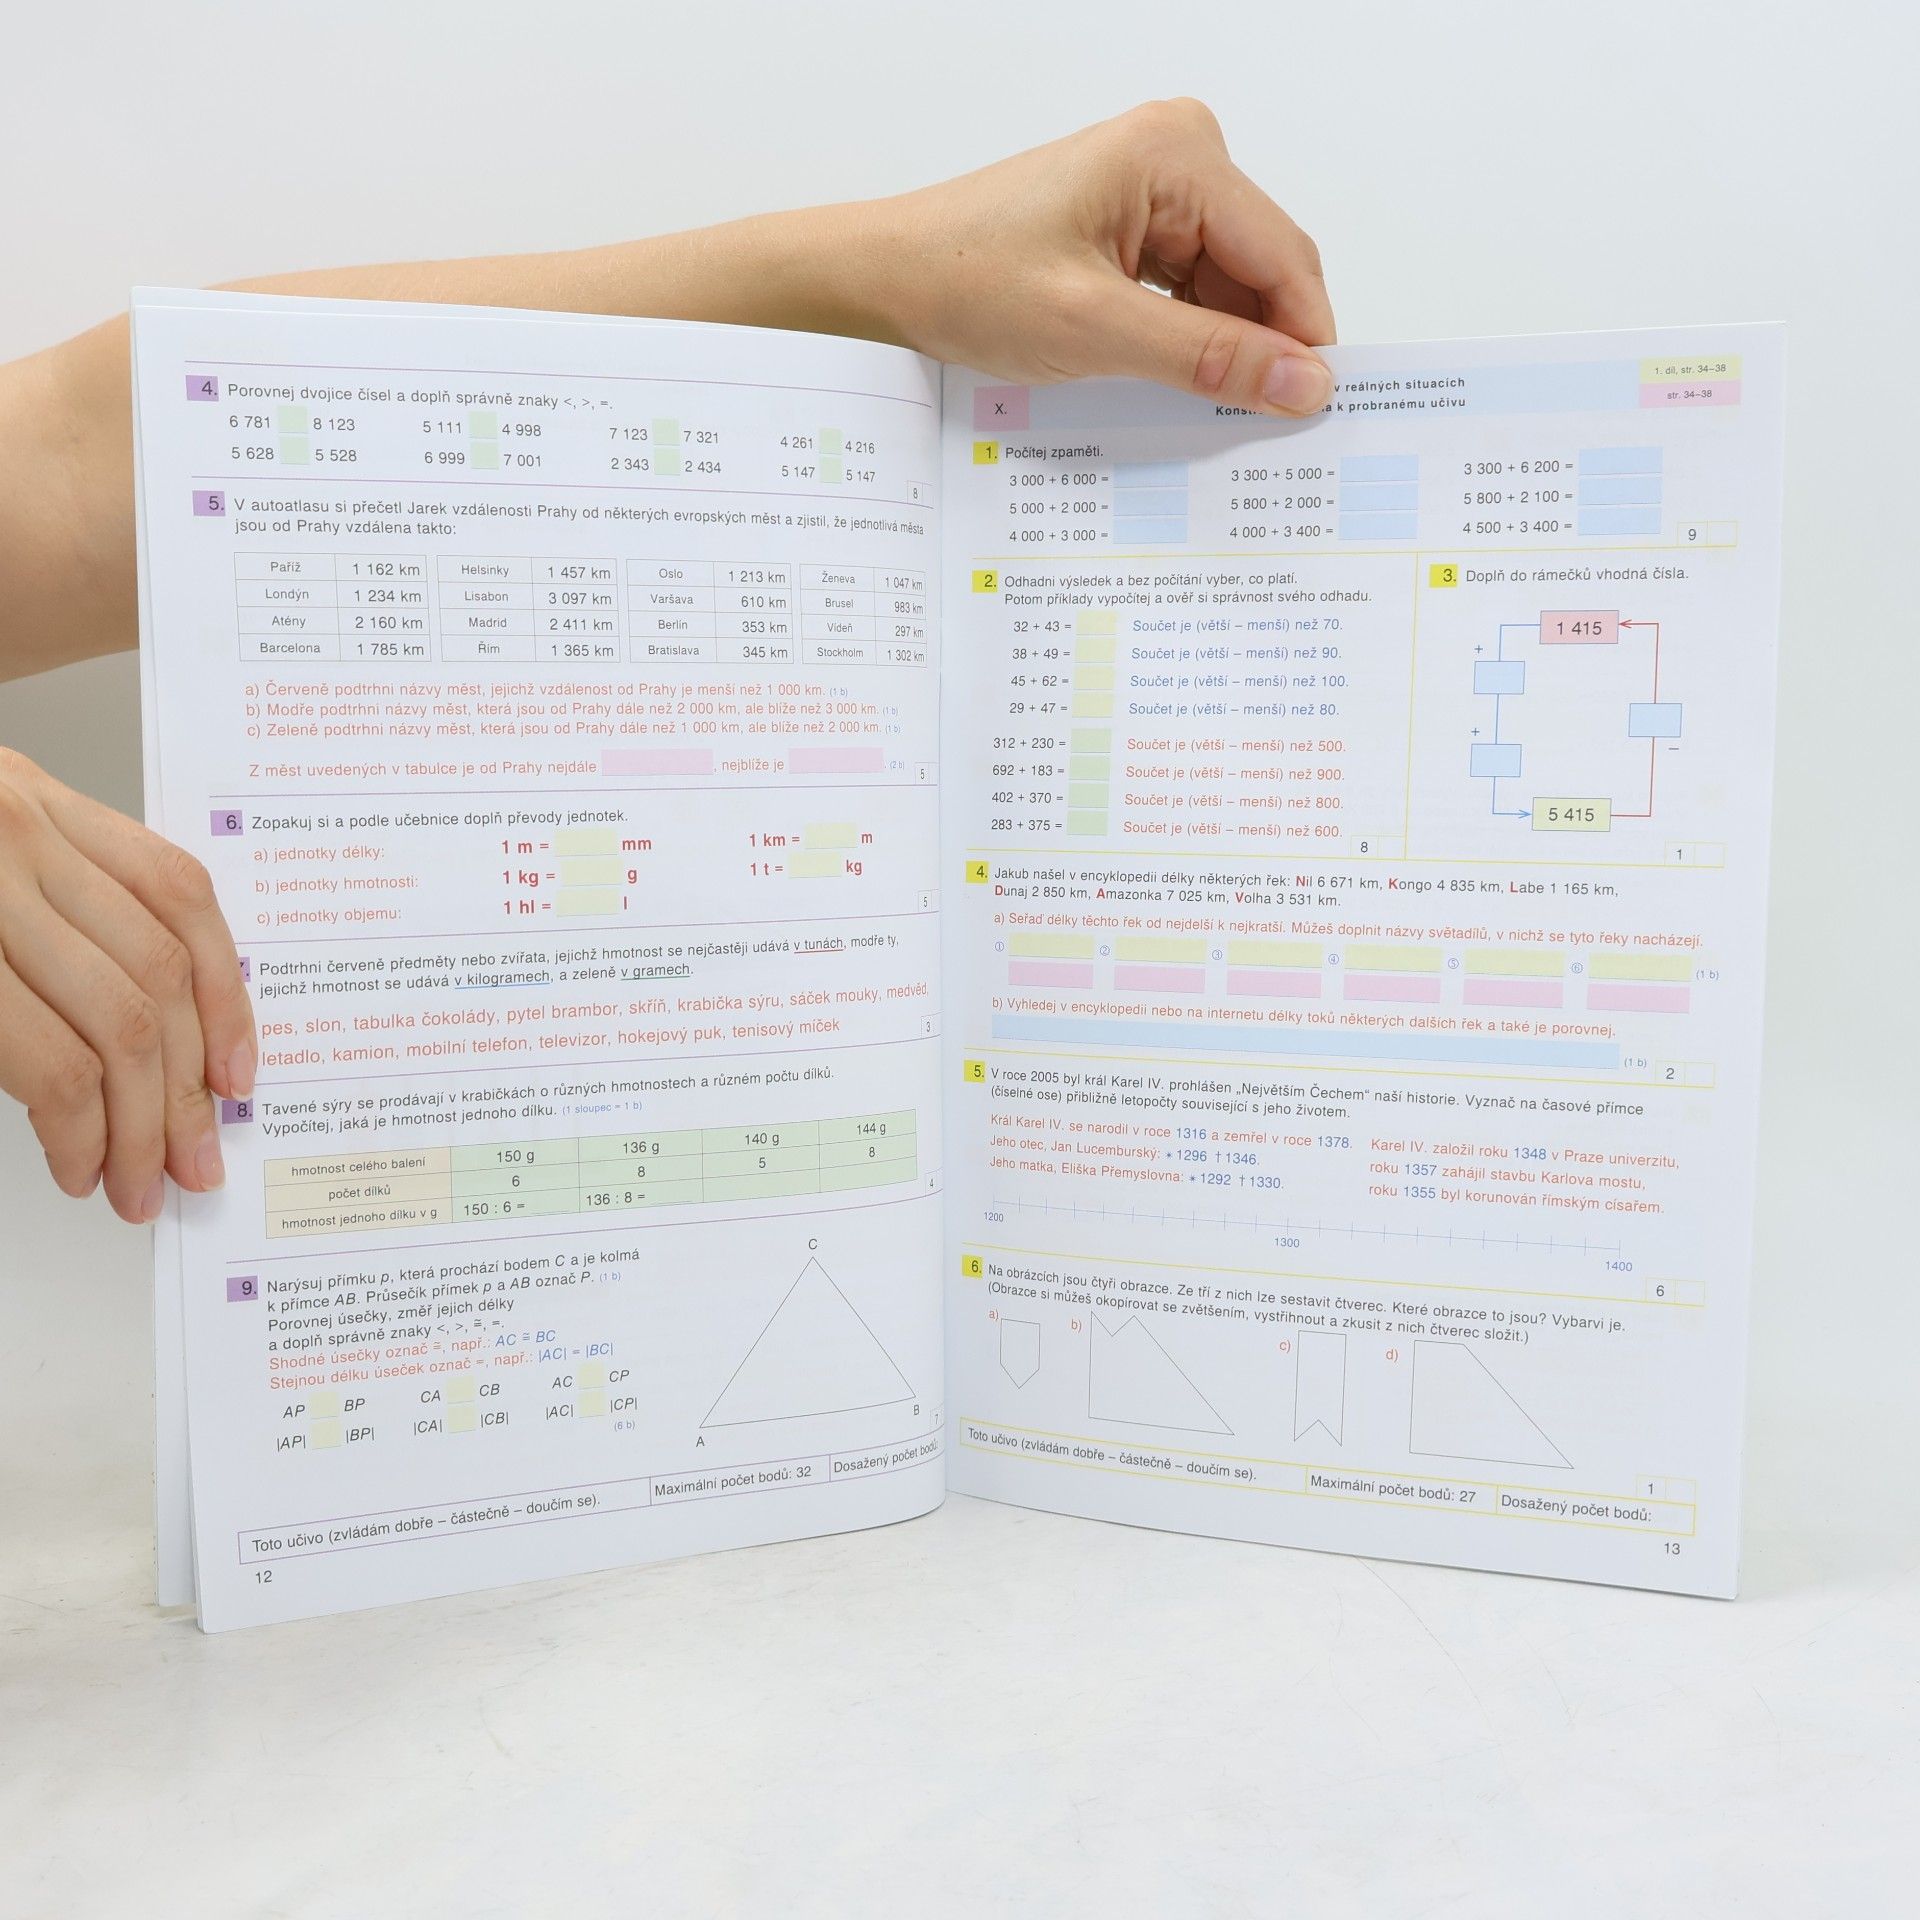 4. Porovnej dvojice čísel a doplň správně znaky <, >, =.
6 781 8 123 5 111 4 998 7 123 7 321 4 261 4 216
5 628 5 528 6 999 7 001 2 343 2 434 5 147 5 147
8
5. V autoatlasu si přečetl Jarek vzdálenosti Prahy od některých evropských měst a zjistil, že jednotlivá města
jsou od Prahy vzdálena takto:
Paříž 1 162 km Helsinky 1 457 km Oslo 1 213 km Ženeva 1 047 km
Londýn 1 234 km Lisabon 3 097 km Varšava 610 km Brusel 983 km
Atény 2 160 km Madrid 2 411 km Berlín 353 km Vídeň 297 km
Barcelona 1 785 km Řím 1 365 km Bratislava 345 km Stockholm 1 302 km
a) Červeně podtrhni názvy měst, jejichž vzdálenost od Prahy je menší než 1 000 km. (1 b)
b) Modře podtrhni názvy měst, která jsou od Prahy dále než 2 000 km, ale blíže než 3 000 km. (1 b)
c) Zeleně podtrhni názvy měst, která jsou od Prahy dále než 1 000 km, ale blíže než 2 000 km. (1 b)
Z měst uvedených v tabulce je od Prahy nejdále , nejblíže je . (2 b)
5
6. Zopakuj si a podle učebnice doplň převody jednotek.
a) jednotky délky: 1 m = mm 1 km = m
b) jednotky hmotnosti: 1 kg = g 1 t = kg
c) jednotky objemu: 1 hl = l
5
Podtrhni červeně předměty nebo zvířata, jejichž hmotnost se nejčastěji udává v tunách, modře ty,
jejichž hmotnost se udává v kilogramech, a zeleně v gramech.
pes, slon, tabulka čokolády, pytel brambor, skříň, krabička sýru, sáček mouky, medvěd,
letadlo, kamion, mobilní telefon, televizor, hokejový puk, tenisový míček
3
8. Tavené sýry se prodávají v krabičkách o různých hmotnostech a různém počtu dílků.
Vypočítej, jaká je hmotnost jednoho dílku. (1 sloupec = 1 b)
hmotnost celého balení 150 g 136 g 140 g 144 g
počet dílků 6 8 5 8
hmotnost jednoho dílku v g 150 : 6 = 136 : 8 =
4
9. Narýsuj přímku p, která prochází bodem C a je kolmá
k přímce AB. Průsečík přímek p a AB označ P. (1 b)
Porovnej úsečky, změř jejich délky
a doplň správně znaky <, >, ≅, =.
Shodné úsečky označ ≅, např.: AC ≅ BC
Stejnou délku úseček označ =, např.: |AC| = |BC|
AP BP CA CB AC CP
|AP| |BP| |CA| |CB| |AC| |CP|
(6 b)
C
A
B
7
Toto učivo (zvládám dobře – částečně – doučím se). Maximální počet bodů: 32 Dosažený počet bodů:
12
X. v reálných situacích
k probranému učivu
1. díl, str. 34–38
str. 34–38
1. Počítej zpaměti.
3 000 + 6 000 = 3 300 + 5 000 = 3 300 + 6 200 =
5 000 + 2 000 = 5 800 + 2 000 = 5 800 + 2 100 =
4 000 + 3 000 = 4 000 + 3 400 = 4 500 + 3 400 =
9
2. Odhadni výsledek a bez počítání vyber, co platí.
Potom příklady vypočítej a ověř si správnost svého odhadu.
32 + 43 = Součet je (větší – menší) než 70.
38 + 49 = Součet je (větší – menší) než 90.
45 + 62 = Součet je (větší – menší) než 100.
29 + 47 = Součet je (větší – menší) než 80.
312 + 230 = Součet je (větší – menší) než 500.
692 + 183 = Součet je (větší – menší) než 900.
402 + 370 = Součet je (větší – menší) než 800.
283 + 375 = Součet je (větší – menší) než 600.
8
3. Doplň do rámečků vhodná čísla.
1 415
+
+
–
5 415
1
4. Jakub našel v encyklopedii délky některých řek: Nil 6 671 km, Kongo 4 835 km, Labe 1 165 km,
Dunaj 2 850 km, Amazonka 7 025 km, Volha 3 531 km.
a) Seřaď délky těchto řek od nejdelší k nejkratší. Můžeš doplnit názvy světadílů, v nichž se tyto řeky nacházejí.
① ② ③ ④ ⑤ ⑥ (1 b)
b) Vyhledej v encyklopedii nebo na internetu délky toků některých dalších řek a také je porovnej.
(1 b) 2
5. V roce 2005 byl král Karel IV. prohlášen „Největším Čechem“ naší historie. Vyznač na časové přímce
(číselné ose) přibližně letopočty související s jeho životem.
Král Karel IV. se narodil v roce 1316 a zemřel v roce 1378.
Jeho otec, Jan Lucemburský: * 1296 † 1346.
Jeho matka, Eliška Přemyslovna: * 1292 † 1330.
Karel IV. založil roku 1348 v Praze univerzitu,
roku 1357 zahájil stavbu Karlova mostu,
roku 1355 byl korunován římským císařem.
1200 1300 1400
6
6. Na obrázcích jsou čtyři obrazce. Ze tří z nich lze sestavit čtverec. Které obrazce to jsou? Vybarvi je.
(Obrazce si můžeš okopírovat se zvětšením, vystřihnout a zkusit z nich čtverec složit.)
a) b) c) d)
1
Toto učivo (zvládám dobře – částečně – doučím se). Maximální počet bodů: 27 Dosažený počet bodů:
13